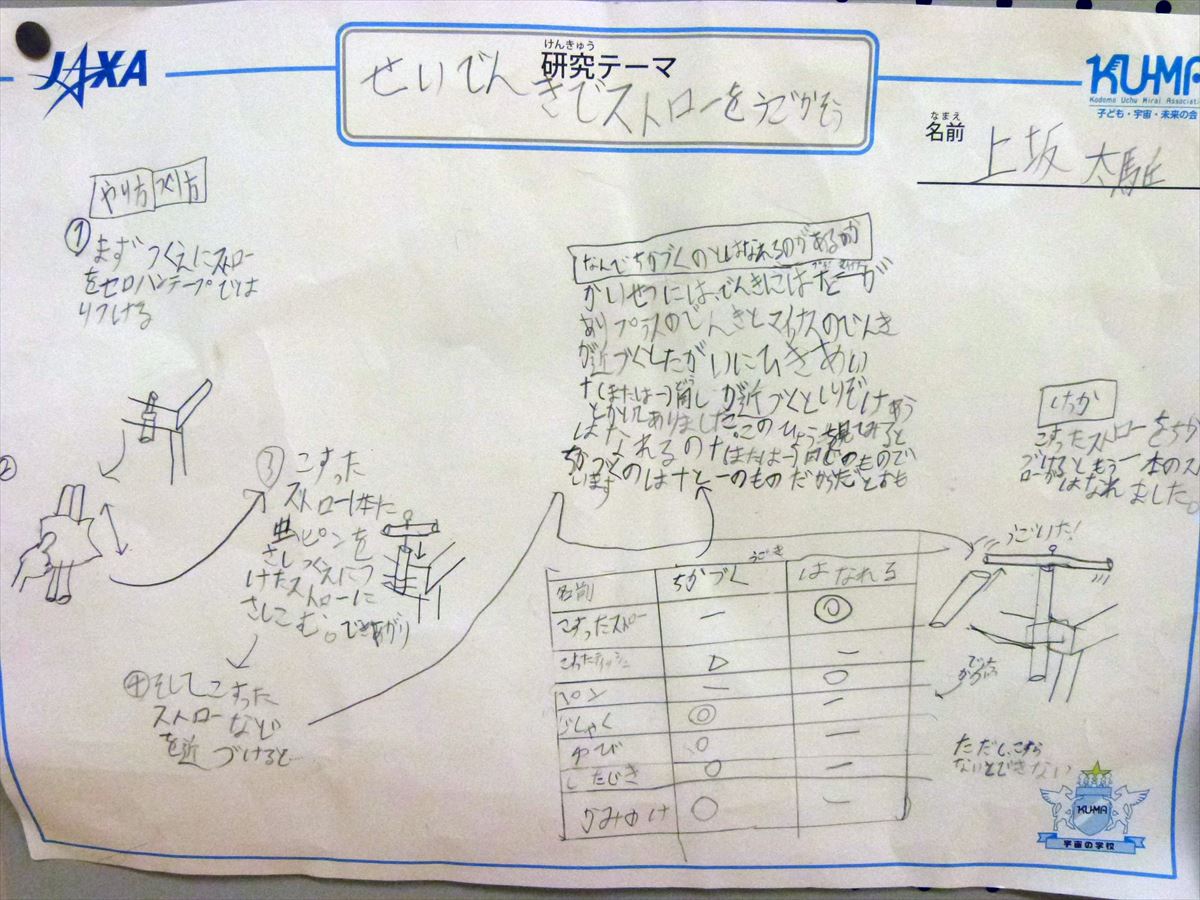 JAXA
けんきゅう
研究テーマ
せいでんきでストローをうごかそう
KU-MA
Kodomo Uchu Mirai Association
子ども・宇宙・未来の会
なまえ
名前
上坂
やり方 つくり方
① まずつくえにストロー
をセロハンテープでは
りつける
②
③ こすった
ストロー1本に
ピンを
さしつくえにつ
けたストローに
さしこむ。できあがり
④ そしてこすった
ストローなど
を近づけると
なんでちかづくのとはなれるのがあるのか
プラス マイナス
かいせつには、でんきには+と−が
ありプラスのでんきとマイナスのでんき
が近づくとたがいにひきあい
+(または−)同しが近づくとしりぞけあう
とかいてありました。このひょうを見てみると
はなれるのは+(または−)同じのもので
ちかづくのは+と−のものだからだとおも
います
けっか
こすったストローをちか
づけるともう一本のスト
ローがはなれました。
うごいた!
うごき
名前 ちかづく はなれる
こすったストロー − ◎
こすったティッシュ △ −
ペン − ○
じしゃく ◎ −
ゆび ○ −
したじき ○ −
かみのけ ○ −
ただし、こすら
ないとできない
KU-MA
宇宙の学校